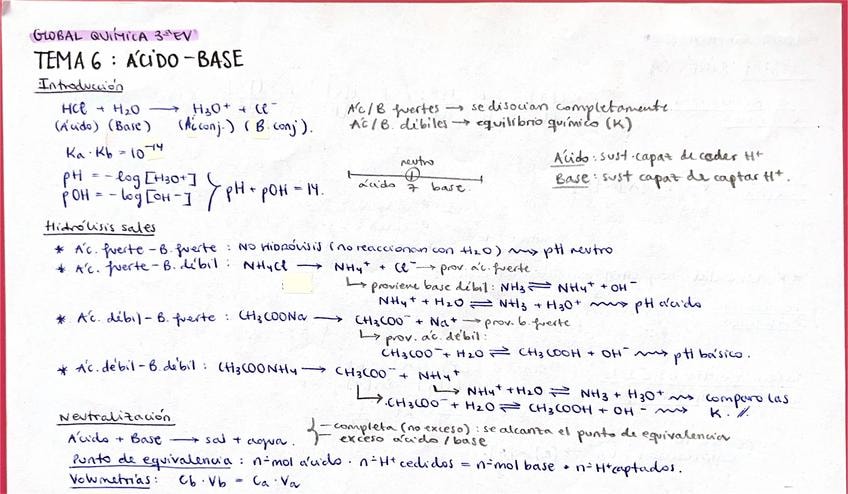 GLOBAL QUÍMICA 3ªEV
TEMA 6 : ÁCIDO-BASE
Introducción
HCl + H2O ⟶ H3O⁺ + Cl⁻
(Ácido) (Base) (Ác conj.) (B. conj).
Ác/B fuertes → se disocian completamente
Ác/B. débiles → equilibrio químico (K)
Ka·Kb = 10⁻¹⁴
pH = -log [H3O+]
pOH = -log [OH-]
pH + pOH = 14.
neutro
ácido 7 base.
Ácido: sust. capaz de ceder H⁺
Base: sust capaz de captar H⁺.
Hidrólisis sales
* Ác. fuerte - B. fuerte : NO HIDRÓLISIS (no reaccionan con H2O) ⇝ pH neutro
* Ác. fuerte - B. débil : NH4Cl ⟶ NH4⁺ + Cl⁻ → prov. ác. fuerte
↳ proviene base débil : NH3 ⇌ NH4⁺ + OH⁻
NH4⁺ + H2O ⇌ NH3 + H3O⁺ ⇝ pH ácido
* Ác. débil - B. fuerte : CH3COONa ⟶ CH3COO⁻ + Na⁺ → prov. b. fuerte
↳ prov. ác. débil :
CH3COO⁻ + H2O ⇌ CH3COOH + OH⁻ ⇝ pH básico.
* Ác. débil - B. débil : CH3COONH4 ⟶ CH3COO⁻ + NH4⁺
↳ NH4⁺ + H2O ⇌ NH3 + H3O⁺ ⇝ comparo las
↳ CH3COO⁻ + H2O ⇌ CH3COOH + OH⁻ ⇝ K. //
Neutralización
Ácido + Base ⟶ sal + agua.
completa (no exceso) : se alcanza el punto de equivalencia
exceso ácido / base
Punto de equivalencia : nº mol ácido · nº H⁺ cedidos = nº mol base · nº H⁺ captados.
Volumetrías: Cb · Vb = Ca · Va